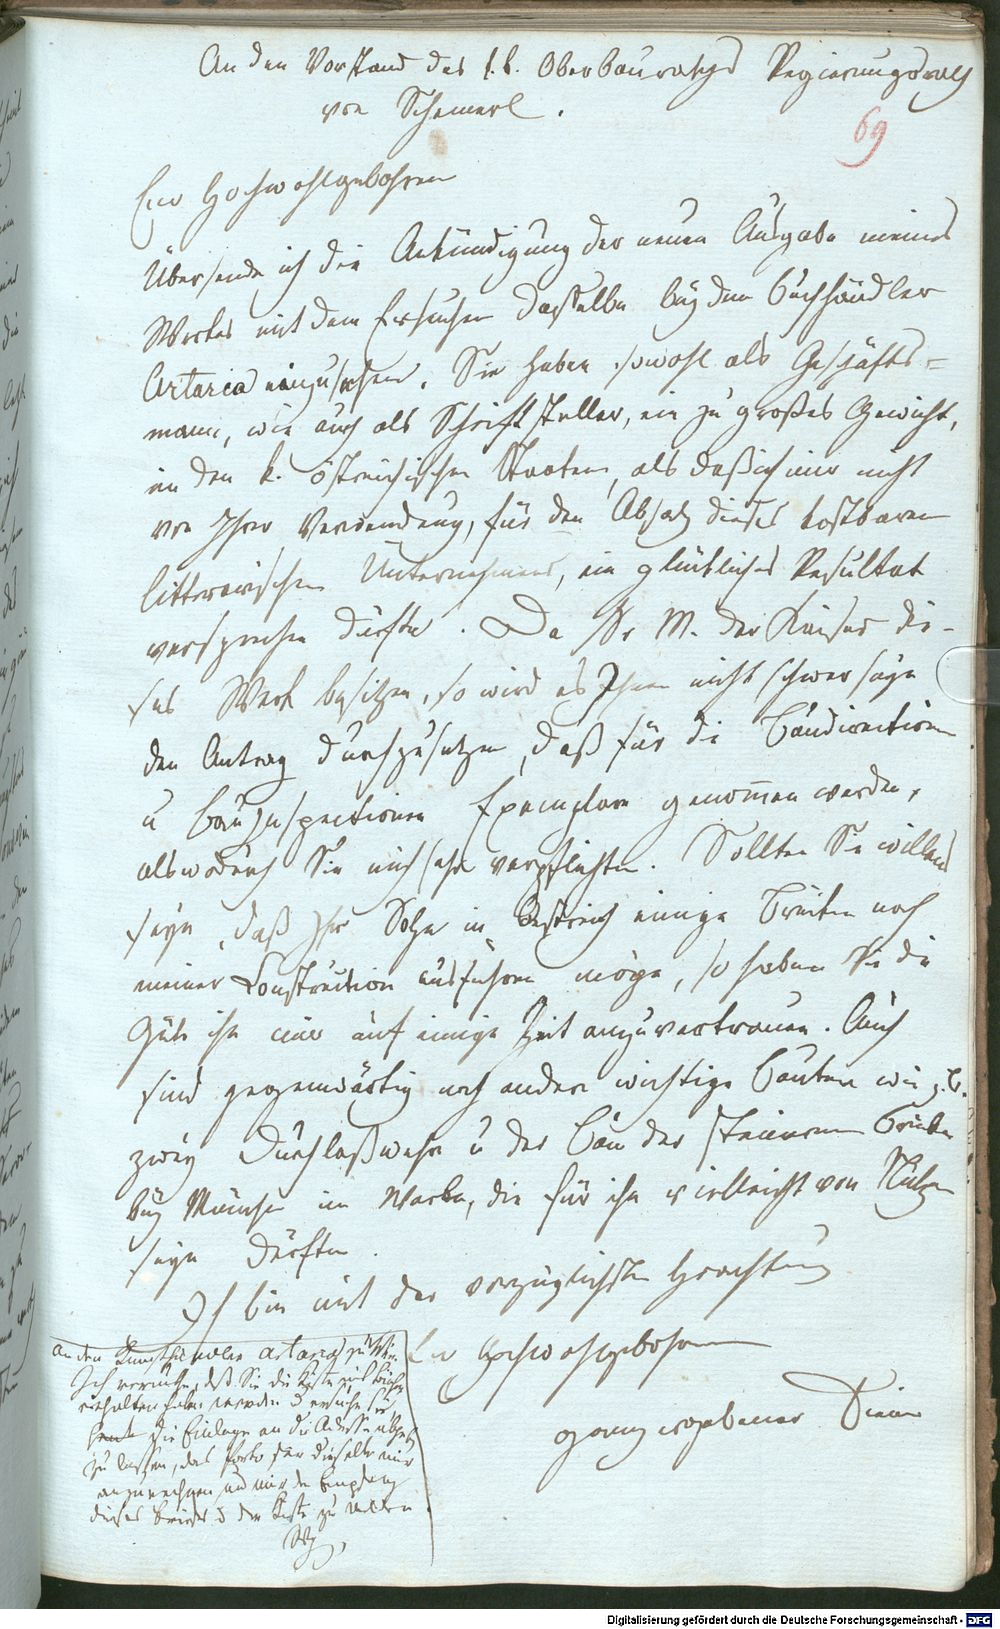 An den Vorstand des k. k. Oberbauraths Regierungsrath
von Schemerl.
69
Euer Hochwohlgebohren
Übersende ich die Ankündigung der neuen Ausgabe meines
Werkes mit dem Ersuchen dasselbe bey dem Buchhändler
Artaria einzusehen. Sie haben sowohl als Geschäfts=
mann, wie auch als Schriftsteller, ein zu großes Gewicht,
in den k. östreichischen Staaten, als daß ich mir nicht
von Ihrer Verwendung, für den Absatz dieses kostbaren
litterarischen Unternehmens, ein glückliches Resultat
versprechen dürfte. Da Sr M. der Kaiser die-
ses Werk besitzen, so wird es Ihnen nicht schwer seyn
den Antrag durchzusetzen, daß für die Baudirectionen
u Bauinspectionen Exemplare genommen werden,
als wodurch Sie mich sehr verpflichten. Sollten Sie willens
seyn, daß Ihr Sohn in Oestreich einige Brücken nach
meiner Construction ausführen möge, so haben Sie die
Güte ihn mir auf einige Zeit anzuvertrauen. Auch
sind gegenwärtig noch andere wichtige Bauten wie z. B.
zwey Durchlaßwehre u der Bau der steinernen Brücke
bey München im Werke, die für ihn vielleicht von Nutzen
seyn dürften.
Ich bin mit der vorzüglichsten Hochachtung
Euer Hochwohlgebohren
ganz ergebener Diener
An den Kunsthändler Artaria zu Wien
Ich vermuthe, daß Sie die Kiste mit
erhalten haben werden u ersuche Sie
die Einlage an die Adresse abgeben
zu lassen, das Porto für dieselbe mir
anzurechnen und mir den Empfang
dieses Briefes u der Kiste zu melden.
Digitalisierung gefördert durch die Deutsche Forschungsgemeinschaft - DFG